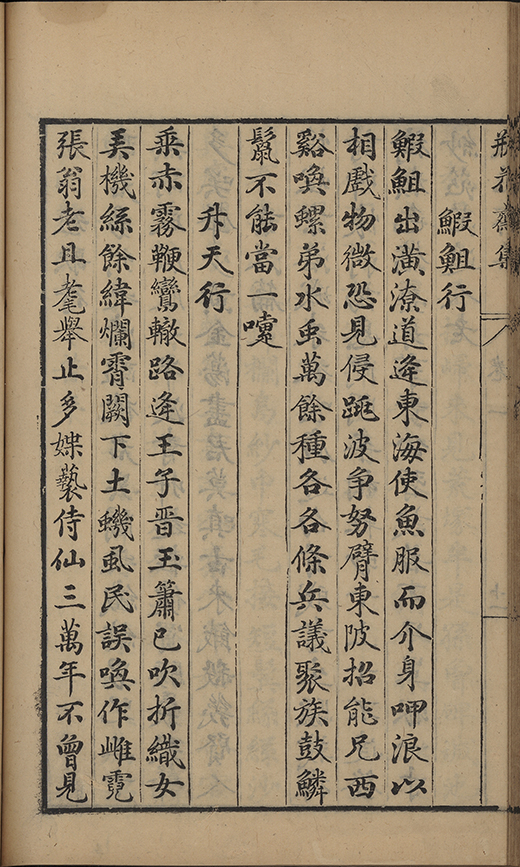 瓶花齋集 卷一
鰕䱉行
鰕䱉出潢潦道逢東海使魚服而介身呷浪以
相戲物微恐見侵跳波争努臂東陂招能兄西
谿喚螺弟水虫萬餘種各各條兵議聚族鼓鱗
鬛不能當一嚏
升天行
乘赤霧鞭鸞轍路逢王子晉玉簫已吹折織女
弄機絲餘緯爛霄闕下土蟣虱民誤喚作雌霓
張翁老且耄舉止多媟褻侍仙三萬年不曾見